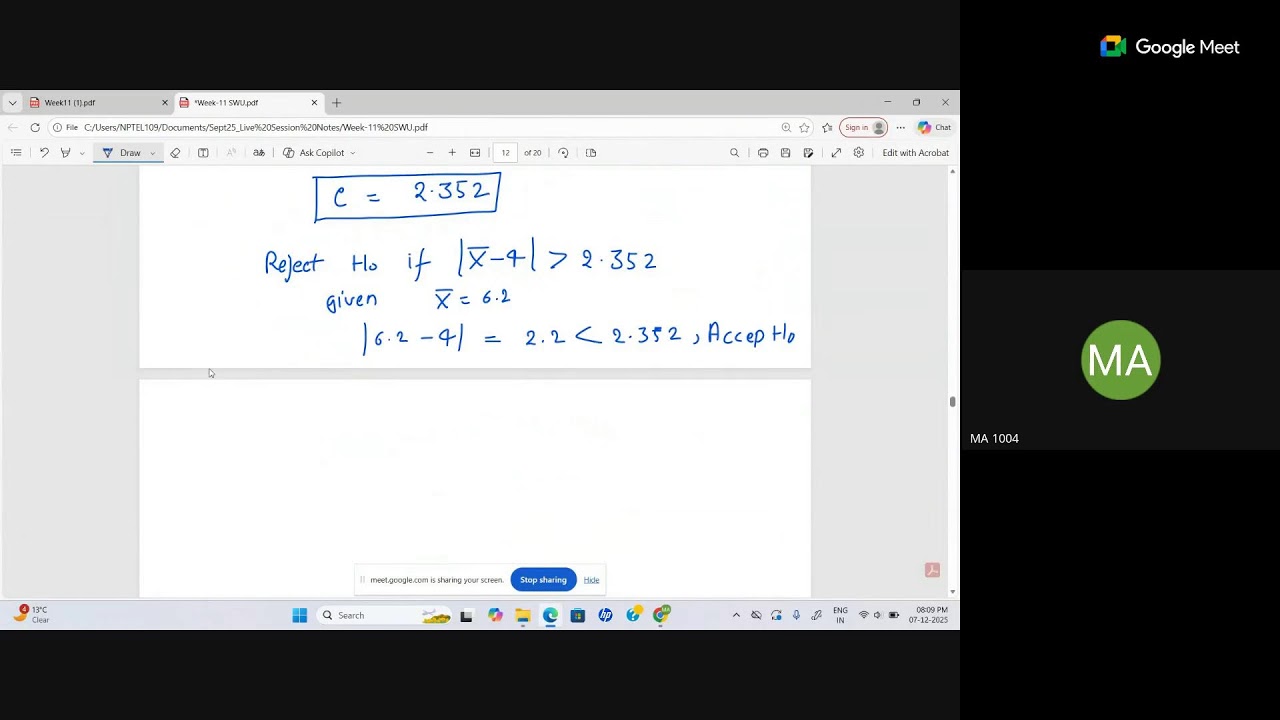 Google Meet
Week11 (1).pdf
*Week-11 SWU.pdf
File C:/Users/NPTEL109/Documents/Sept25_Live%20Session%20Notes/Week-11%20SWU.pdf
Sign in
Chat
Draw
Ask Copilot
12 of 20
Edit with Acrobat
C = 2.352
Reject Ho if |X̅-4| > 2.352
given X̅ = 6.2
|6.2 - 4| = 2.2 < 2.352, Accep Ho
MA
MA 1004
meet.google.com is sharing your screen. Stop sharing Hide
4 13°C
Clear
Search
ENG
IN
08:09 PM
07-12-2025